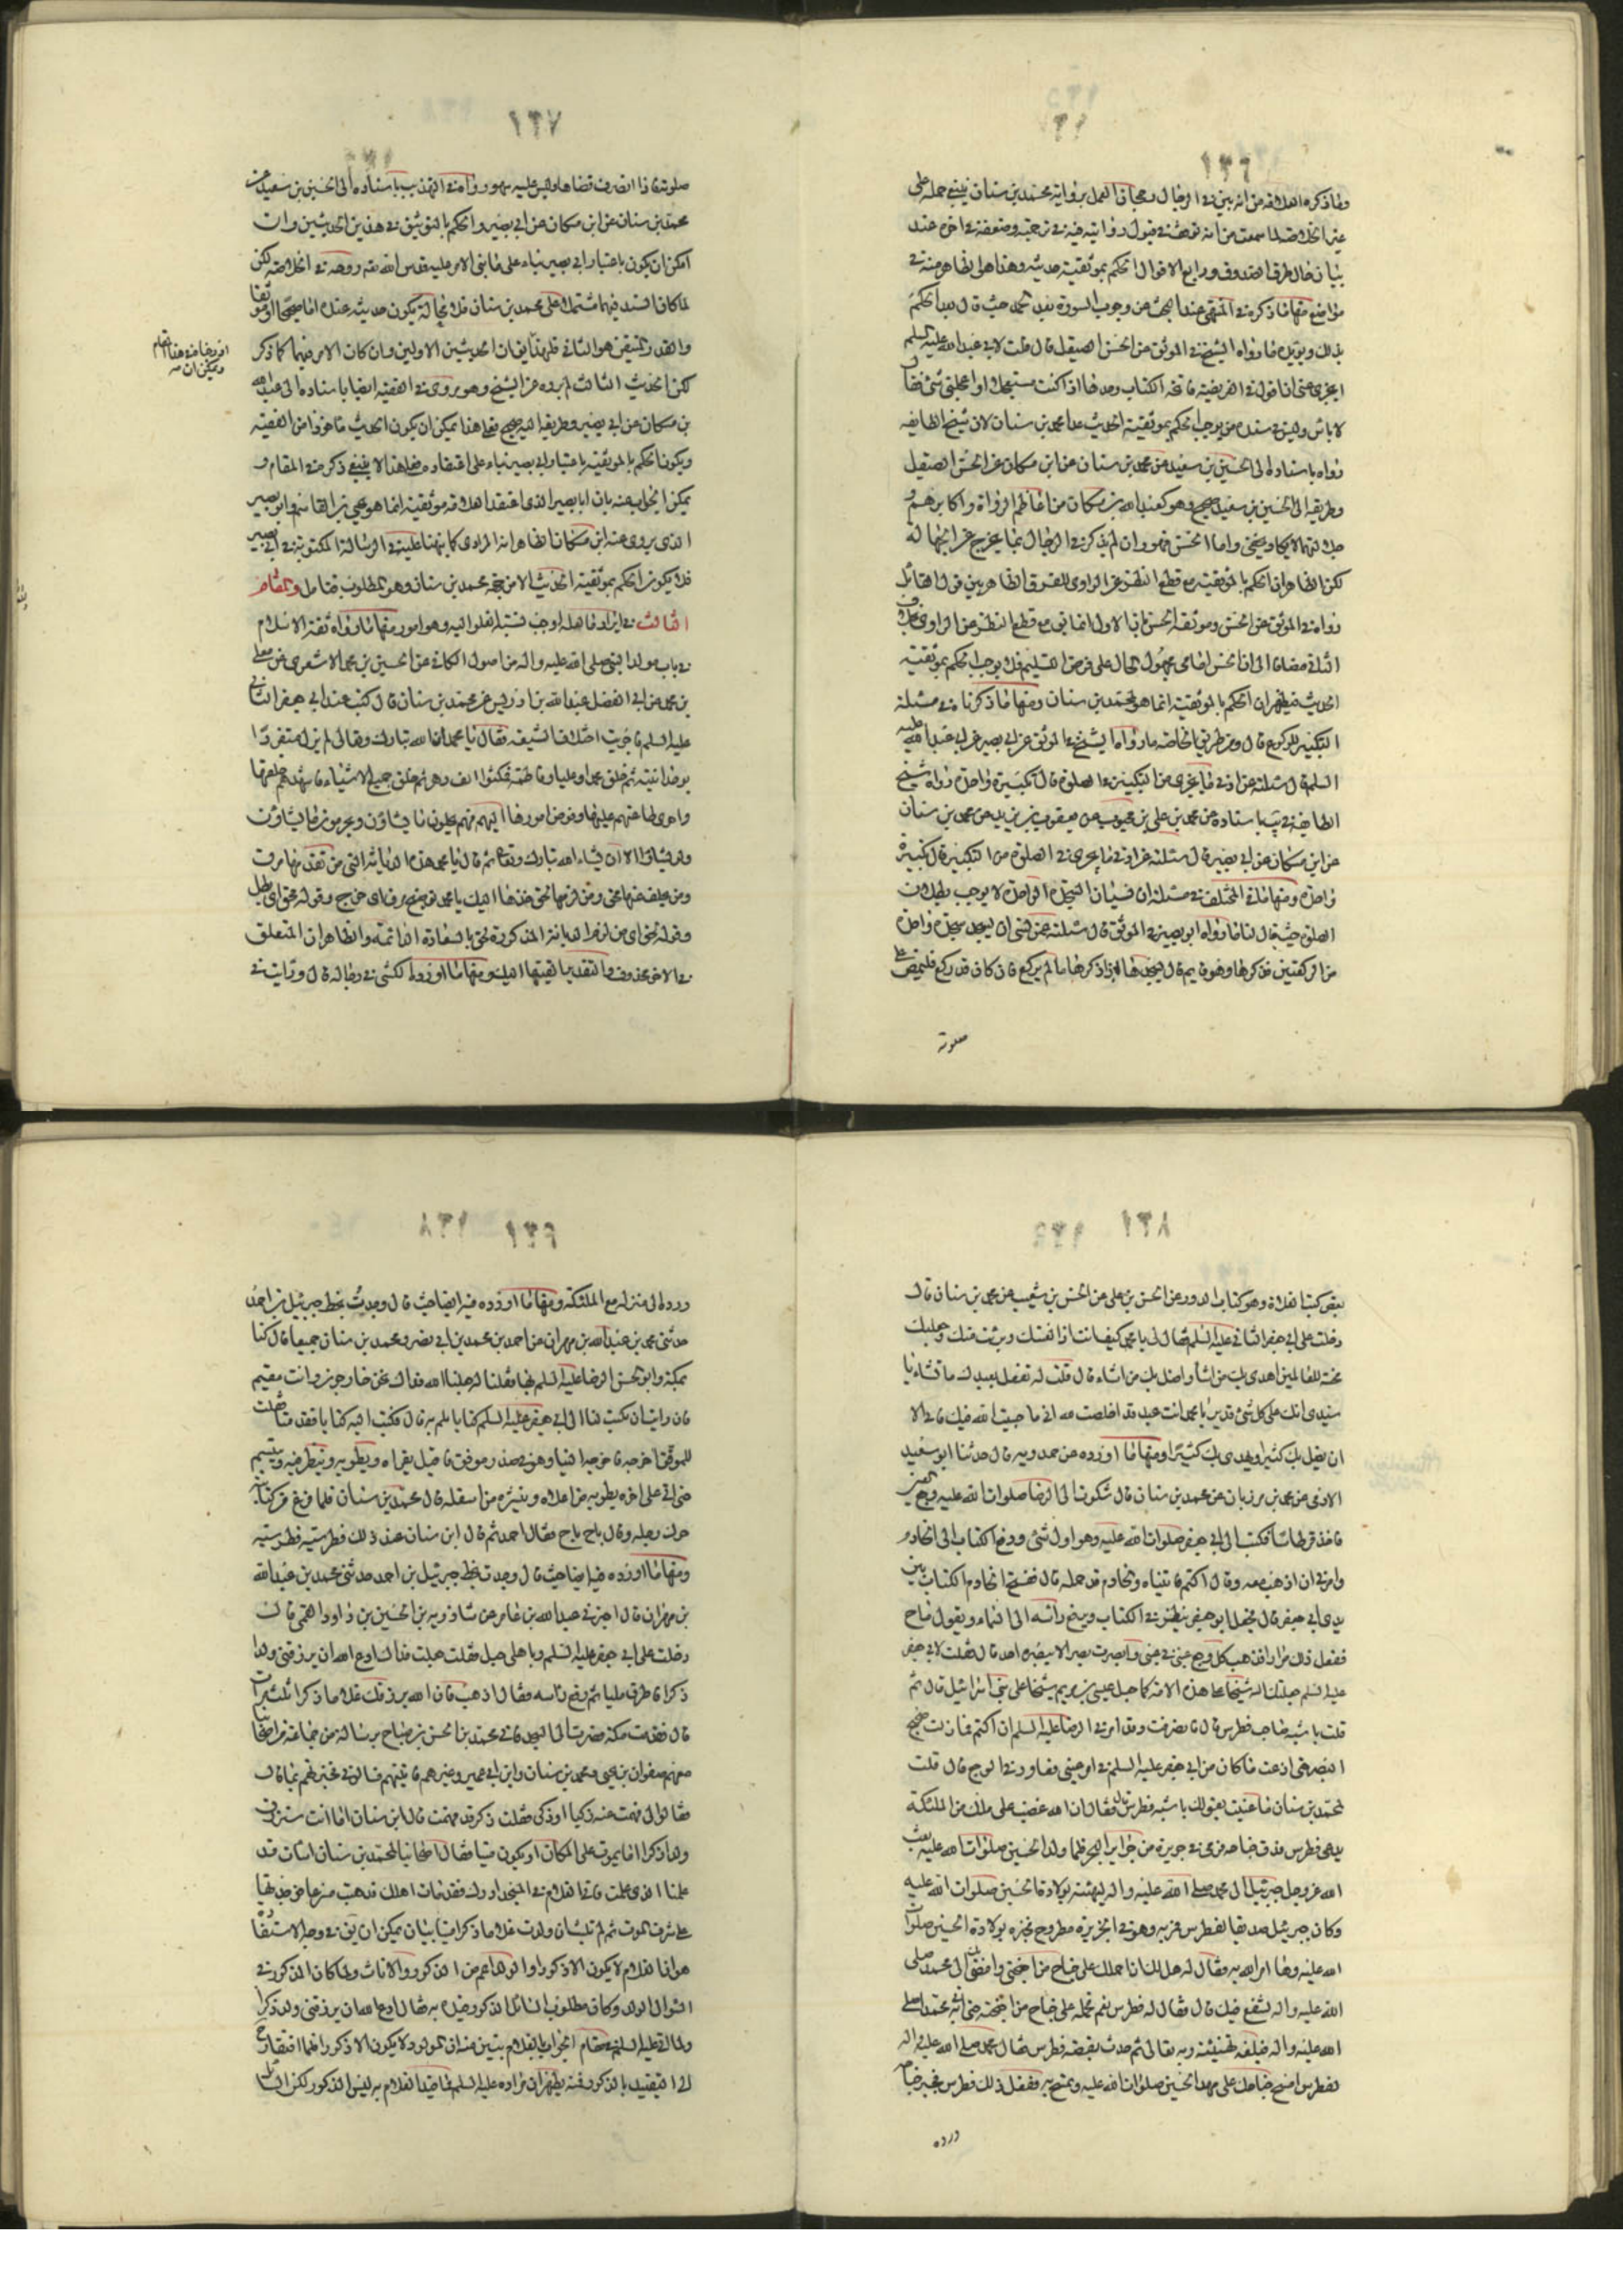 ١٣٦
وما ذكره العلامة من انه بين في الرجال رجحان العمل برواية محمد بن سنان ينبغي حمله على
غير الخلاصة لما سمعت من انه توقف في قبول روايته فيه في ترجمته وضعفه في اخره عند
بيان حال طرق الصدوق ورابع الاقوال الحكم بموثقية حديثه وهذا هو الظاهر منه في
مواضع منها ما ذكره في المنتهى عند البحث عن وجوب السورة بعد الحمد حيث قال بعد الحكم
بذلك ويؤيده ما رواه الشيخ في الموثق عن الحسن الصيقل قال قلت لابي عبد الله عليه السلم
ايجزي عني ان اقول في الفريضة فاتحة الكتاب وحدها اذا كنت مستعجلا او اعجلني شئ فقال
لا باس وليس في سنده من يوجب الحكم بموثقية الحديث عدا محمد بن سنان لان شيخ الطايفة
رواه باسناده الى الحسين بن سعيد عن محمد بن سنان عن ابن مسكان عن الحسن الصيقل
وطريقه الى الحسين بن سعيد صحيح وهو كعبد الله بن مسكان من اعاظم الرواة واكابرهم و
جلالتهما لا يكاد يخفى واما الحسن فهو وان لم يذكر في الرجال بما يخرج عن الجهالة
لكن الظاهر ان الحكم بالموثقية مع قطع النظر عن الراوي للفرق الظاهر بين قول القائل
رواه في الموثق عن الحسن وموثقة الحسن فان الاول انما يق مع قطع النظر عن الراوي بخلاف
الثاني مضافا الى ان الحسن امامي مجهول الحال على فرض التسليم فلا يوجب الحكم بموثقية
الحديث فيظهر ان الحكم بالموثقية انما هو لمحمد بن سنان ومنها ما ذكرنا في مسئلة
التكبير للركوع قال ومن طريق الخاصة ما رواه الشيخ في الموثق عن ابي بصير عن ابي عبد الله عليه
السلم قال سئلته عن ادنى ما يجزي من التكبير في الصلوة قال تكبيرة واحدة رواه شيخ
الطايفة في يب باسناده عن محمد بن علي بن محبوب عن يعقوب بن يزيد عن محمد بن سنان
عن ابن مسكان عن ابي بصير قال سئلته عن ادنى ما يجزي في الصلوة من التكبير قال تكبيرة
واحدة ومنها ما في المختلف في مسئلة ان نسيان السجدة الواحدة لا يوجب بطلان
الصلوة حيث قال لنا ما رواه ابو بصير في الموثق قال سئلته عمن نسي ان يسجد سجدة واحدة
من الركعتين فذكرها وهو قايم قال يسجدها اذا ذكرها ما لم يركع فان كان قد ركع فليمض على
صلوته
١٣٧
صلوته فاذا انصرف قضاها وليس عليه سهو رواه في التهذيب باسناده الى الحسين بن سعيد عن
محمد بن سنان عن ابن مسكان عن ابي بصير والحكم بالتوثيق في هذين الحديثين وان
امكن ان يكون باعتبار ابي بصير بناء على ما بنى الامر عليه قدس الله تعه روحه في الخلاصة لكن
لما كان السند فيهما مشتملا على محمد بن سنان فلا محالة يكون حديثه عنده اما صحيحا او موثقا
والقدر المتيقن هو الثاني فلهذا يق ان الحديثين الاولين وان كان الامر فيهما كما ذكر
لكن الحديث الثالث لم يروه عن الشيخ وهو مروي في الفقيه ايضا باسناده الى عبد الله
بن مسكان عن ابي بصير وطريقه اليه صحيح فعلى هذا يمكن ان يكون الحديث ماخوذا من الفقيه
ويكون الحكم بالموثقية باعتبار ابي بصير بناء على اعتقاده فعلى هذا لا ينبغي ذكره في المقام و
يمكن الجواب عنه بان ابا بصير الذي اعتقد العلامة موثقيته انما هو يحيى بن القاسم وابو بصير
الذي يروي عنه ابن مسكان الظاهر انه المرادي كما نبهنا عليه في الرسالة المكتوبة في ابي بصير
فلا يكون الحكم بموثقية الحديث الا من جهة محمد بن سنان وهو المطلوب فتامل والمقام
الثالث في ايراد ما لعله اوجب نسبة الغلو اليه وهو امور منها ما رواه ثقة الاسلام
في باب مولد النبي صلى الله عليه واله من اصول الكافي عن الحسين بن محمد الاشعري عن معلى
بن محمد عن ابي الفضل عبد الله بن ادريس عن محمد بن سنان قال كنت عند ابي جعفر الثاني
عليه السلم فاجريت اختلاف الشيعة فقال يا محمد ان الله تبارك وتعالى لم يزل متفردا
بوحدانيته ثم خلق محمدا وعليا وفاطمة فمكثوا الف دهر ثم خلق جميع الاشياء فاشهدهم خلقها
واجرى طاعتهم عليها وفوض امورها اليهم فهم يحلون ما يشاؤن ويحرمون ما يشاؤن
ولن يشاؤا الا ان يشاء الله تبارك وتعالى ثم قال يا محمد هذه الديانة التي من تقدمها مرق
ومن تخلف عنها محق ومن لزمها لحق خذها اليك يا محمد توضيح مرق اي خرج وقوله محق اي بطل
وقوله لحق اي من لزم الديانة المذكورة لحق بالسعادة الدائمة والظاهر ان المتعلق
في الاخر محذوف والتقدير القيتها اليك ومنها ما اورده الكشي في رجاله قال ورايت في
١٣٨
بعض كتب الغلاة وهو كتاب الدور عن الحسن بن علي عن الحسن بن شعيب عن محمد بن سنان قال
دخلت على ابي جعفر الثاني عليه السلم فقال لي يا محمد كيف انت اذا لعنتك وبرئت منك وجعلتك
محنة للعالمين اهدي بك من اشاء واضل بك من اشاء قال قلت له تفعل بعبدك ما تشاء يا
سيدي انك على كل شئ قدير يا محمد انت عبد قد اخلصت لله اني ناجيت الله فيك فابى الا
ان يضل بك كثيرا ويهدي بك كثيرا ومنها ما اورده عن حمدويه قال حدثنا ابو سعيد
الادمي عن محمد بن مرزبان عن محمد بن سنان قال شكوت الى الرضا صلوات الله عليه وجع العين
فاخذ قرطاسا فكتب الى ابي جعفر صلوات الله عليه وهو اول شئ ودفع الكتاب الى الخادم
وامرني ان اذهب معه وقال اكتم فاتيناه وخادم قد حمله قال ففتح الخادم الكتاب بين
يدي ابي جعفر قال فجعل ابو جعفر ينظر في الكتاب ويرفع راسه الى السماء ويقول ناج
ففعل ذلك مرارا فذهب كل وجع في عيني وابصرت بصرا لا يبصره احد قال فقلت لابي جعفر
عليه السلم جعلك الله شيخا على هذه الامة كما جعل عيسى بن مريم شيخا على بني اسرائيل قال ثم
قلت يا شبيه صاحب فطرس قال فانصرفت وقد امرني الرضا عليه السلم ان اكتم فما زلت صحيح
البصر حتى اذعت ما كان من ابي جعفر عليه السلم في امر عيني فعاودني الوجع قال قلت
لمحمد بن سنان ما عنيت بقولك يا شبيه صاحب فطرس قال فقال ان الله غضب على ملك من الملئكة
يدعى فطرس فدق جناحه فرمى في جزيرة من جزاير البحر فلما ولد الحسين صلوات الله عليه بعث
الله عز وجل جبرئيل الى محمد صلى الله عليه واله ليهنئه بولادة الحسين صلوات الله عليه
وكان جبرئيل صديقا لفطرس فمر به وهو في الجزيرة مطروح فخبره بولادة الحسين صلوات
الله عليه وما امر الله به فقال له هل لك ان احملك على جناح من اجنحتي وامضي بك الى محمد صلى
الله عليه واله ليشفع فيك قال فقال له فطرس نعم فحمله على جناح من اجنحته حتى اتى به محمدا صلى
الله عليه واله فبلغه تهنئة ربه تعالى ثم حدثه بقصة فطرس فقال محمد صلى الله عليه واله
لفطرس امسح جناحك على مهد الحسين صلوات الله عليه وتمسح به ففعل ذلك فطرس فجبر جناحه
ورده
١٣٩
ورده الى منزله مع الملئكة ومنها ما اورده فيه ايضا حيث قال وجدت بخط جبرئيل بن احمد
حدثني محمد بن عبد الله بن مهران عن احمد بن محمد بن ابي نصر ومحمد بن سنان جميعا قال كنا
بمكة وابو الحسن الرضا عليه السلم بها فقلنا له جعلنا الله فداك نحن خارجون وانت مقيم
فان رايت ان تكتب لنا الى ابي جعفر عليه السلم كتابا نلم به قال فكتب اليه كتابا فقدمنا فقلت
للموفق اخرجه فاخرجه الينا وهو في صدر موفق فاقبل يقراه ويطويه وينظر فيه ويتبسم
حتى اتى على اخره يطويه من اعلاه وينشره من اسفله قال محمد بن سنان فلما فرغ من كتابه
حرك رجله وقال ناج ناج فقال احمد ثم قال ابن سنان عند ذلك فطرسية فطرسية
ومنها ما اورده فيه ايضا حيث قال وجدت بخط جبرئيل بن احمد حدثني محمد بن عبد الله
بن مهران قال اخبرني عبد الله بن عامر عن شاذويه بن الحسين بن داود القمي قال
دخلت على ابي جعفر عليه السلم وباهلي حبل فقلت جعلت فداك ادع الله ان يرزقني ولدا
ذكرا فاطرق مليا ثم رفع راسه فقال اذهب فان الله يرزقك غلاما ذكرا ثلث مرات
قال فقدمت مكة فصرت الى المسجد فاتى محمد بن الحسن بن صباح برسالة من جماعة من اصحابنا
منهم صفوان بن يحيى ومحمد بن سنان وابن ابي عمير وغيرهم فاتيتهم فسالوني فخبرتهم بما قال
فقالوا لي فهمت عنه ذكي او زكي فقلت ذكر قد فهمت قال ابن سنان اما انت سترزق
ولدا ذكرا اما يموت على المكان او يكون ميتا فقال اصحابنا لمحمد بن سنان اسات قد
علمنا الذي علمت فاتى الغلام في المسجد ادرك فقد مات اهلك فذهبت مسرعا فوجدتها
على شرف الموت ثم لم تلبث ان ولدت غلاما ذكرا ميتا بيان يمكن ان يق في وجه الاستفهام
هو ان الغلام لا يكون الا ذكرا والولد اعم من الذكور والاناث ولما كان المذكور في
السوال الولد وكان مطلوب السائل الذكور قيده به فقال ادع الله ان يرزقني ولدا ذكرا
ولما اتى عليه السلم في مقام الجواب بالغلام تبين منه ان المولود لا يكون الا ذكرا فما افتقار
الى التقييد بالذكورة فمنه يظهر ان مراده عليه السلم مما قيد الغلام به ليس الذكور لكن السائل